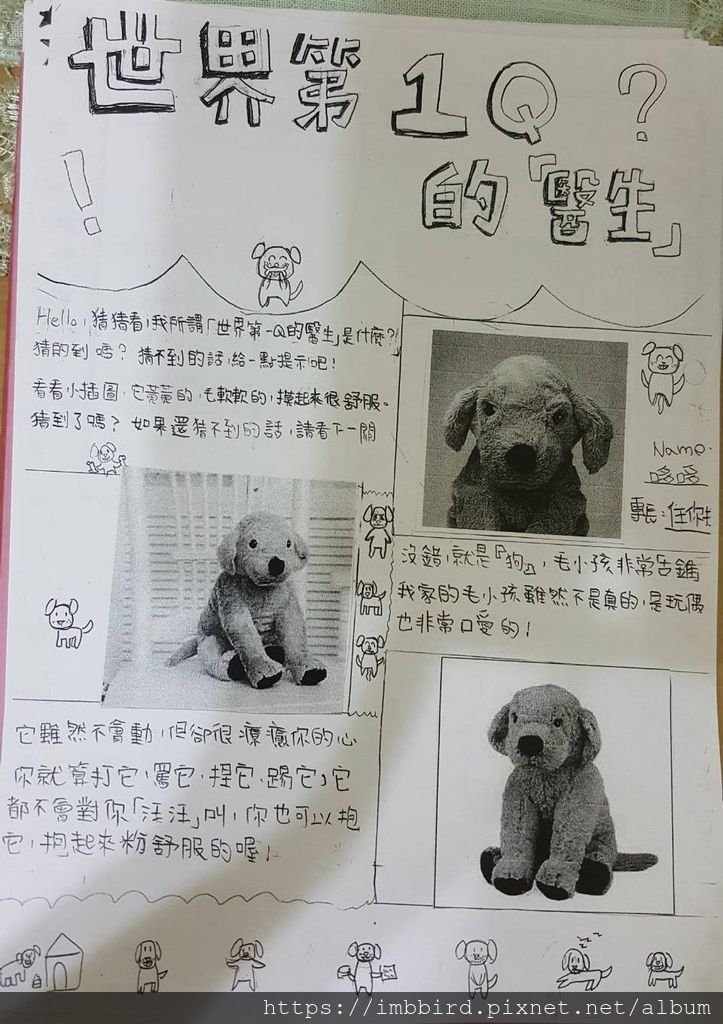 世界第1Q？
！
的「醫生」
Hello, 猜猜看, 我所謂「世界第一Q的醫生」是什麼？
猜的到嗎？猜不到的話, 給一點提示吧！
看看小插圖, 它黃黃的, 毛軟軟的, 摸起來很舒服。
猜到了嗎？如果還猜不到的話, 請看下一關
Name:
哆哆
專長:任你
沒錯, 就是『狗』, 毛小孩非常古錐
我家的毛小孩雖然不是真的, 是玩偶
也非常口愛的！
它雖然不會動, 但卻很療癒你的心
你就算打它, 罵它, 捏它, 踢它, 它
都不會對你「汪汪」叫, 你也可以抱
它, 抱起來粉舒服的喔！
zzz
https://imbbird.pixnet.net/album